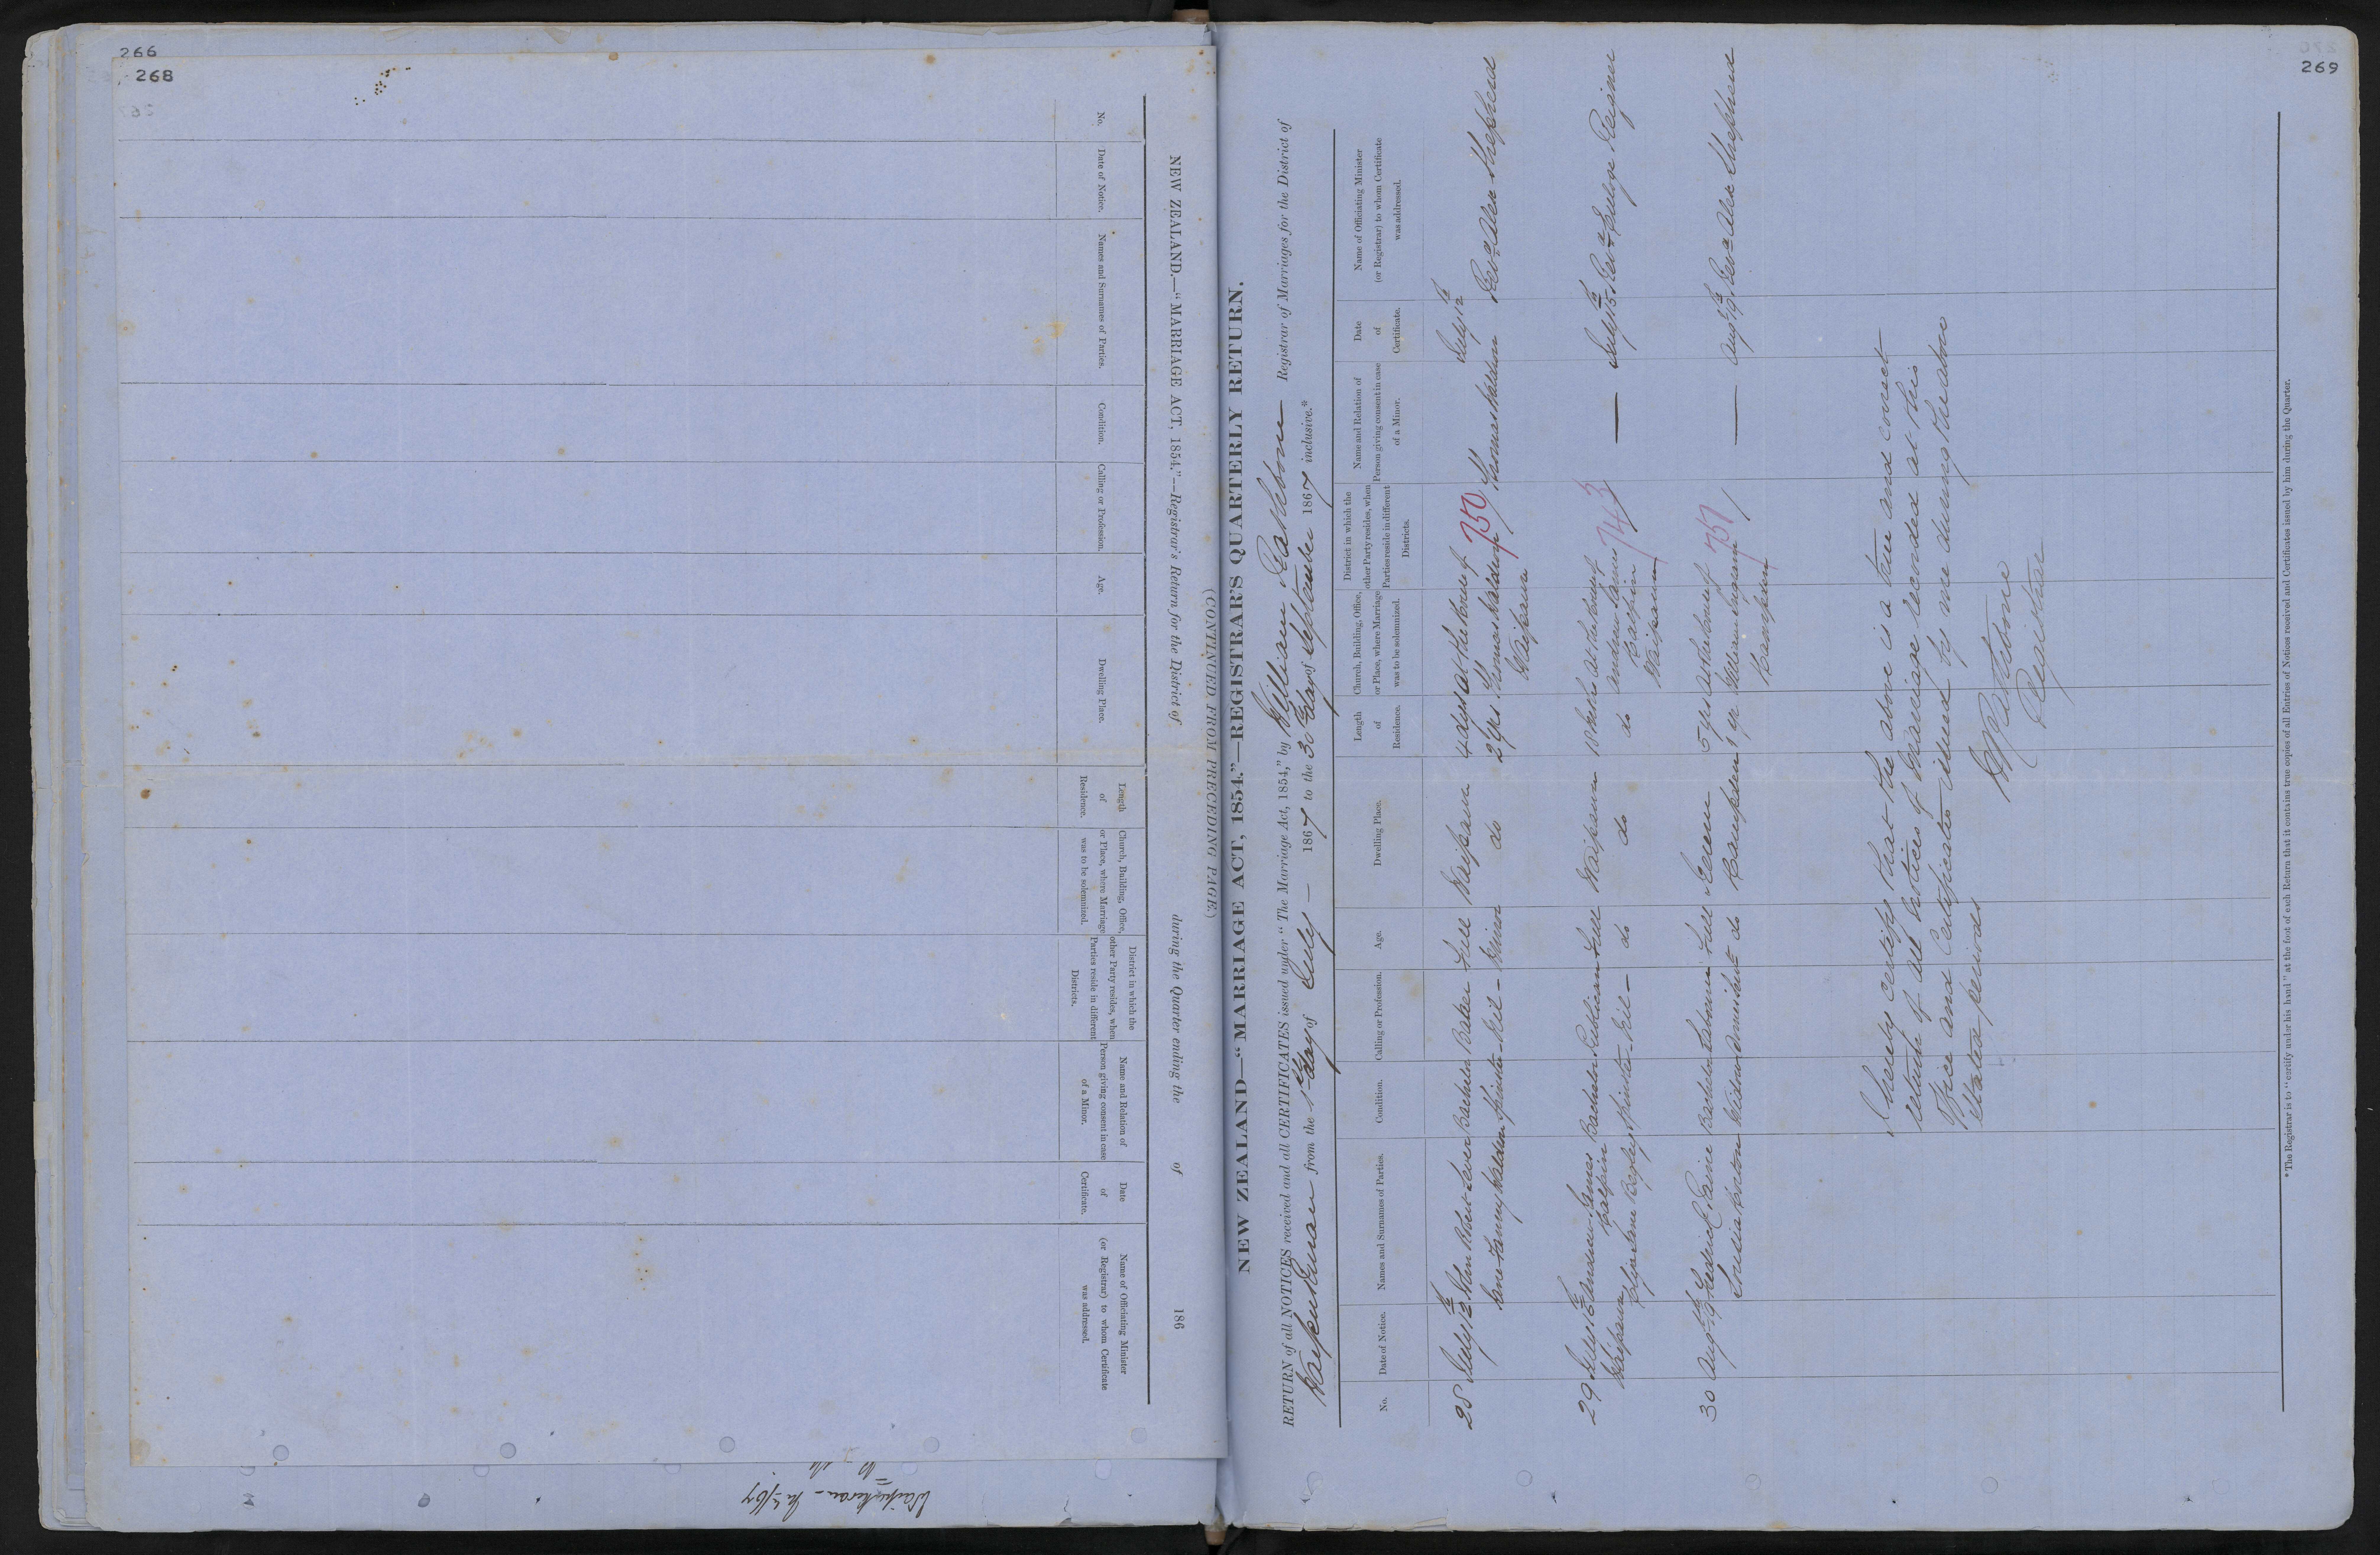 266
268
NEW ZEALAND.—"MARRIAGE ACT, 1854."—Registrar's Return for the District of during the Quarter ending the of 186
No.
Date of Notice.
Names and Surnames of Parties.
Condition.
Calling or Profession.
Age.
Dwelling Place.
Length
of
Residence.
Church, Building, Office,
or Place, where Marriage
was to be solemnized.
District in which the
other Party resides, when
Parties reside in different
Districts.
Name and Relation of
Person giving consent in case
of a Minor.
Date
of
Certificate.
Name of Officiating Minister
(or Registrar) to whom Certificate
was addressed.
269
(CONTINUED FROM PRECEDING PAGE.)
NEW ZEALAND—"MARRIAGE ACT, 1854."—REGISTRAR'S QUARTERLY RETURN.
RETURN of all NOTICES received and all CERTIFICATES issued under "The Marriage Act, 1854," by William Rathbone Registrar of Marriages for the District of
Waipukurau from the 1st day of July — 1867 to the 30 day of September 1867 inclusive.*
No.
Date of Notice.
Names and Surnames of Parties.
Condition.
Calling or Profession.
Age.
Dwelling Place.
Length
of
Residence.
Church, Building, Office,
or Place, where Marriage
was to be solemnized.
District in which the
other Party resides, when
Parties reside in different
Districts.
Name and Relation of
Person giving consent in case
of a Minor.
Date
of
Certificate.
Name of Officiating Minister
(or Registrar) to whom Certificate
was addressed.
28 July 12th John Robert Bachelor Baker Full Waipawa 4 dys At the house of 750 July 12th
Fanny Spinster - Nil - Minor do 2 yrs Thomas Thomas Revd Alex Shepherd
Waipawa
29 July 15th Andrew James Bachelor Full Waipawa At the house of 743 — July 15th Revd George
Waipawa Spinster - Nil - do do do Andrew James
Waipawa
30 Augt 19th Fredrick Paine Bachelor Full 5 yrs At the house of 751 — Augt 19th Revd Alex Shepherd
Widow do Kaupden 1 yr William
Kaupden
I hereby certify that the above is a true and correct
return of all notices of Marriage recorded at this
Office and Certificates issued by me during the above
stated periods
W Rathbone
Registrar
* The Registrar is to "certify under his hand" at the foot of each Return that it contains true copies of all Entries of Notices received and Certificates issued by him during the Quarter.